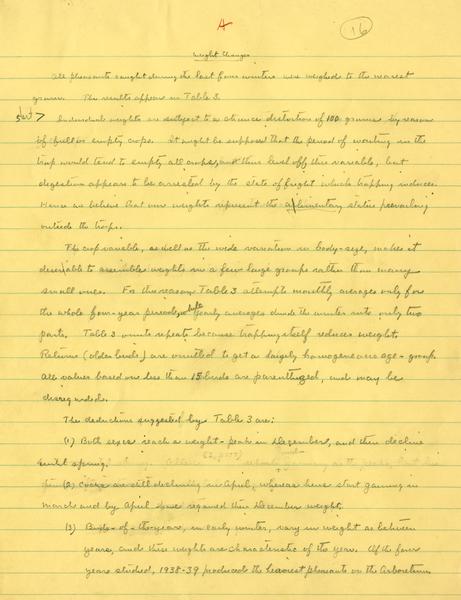 A
16
Weight Changes
All pheasants caught during the last four winters were weighed to the nearest
gram. The results appear in Table 3.
Individual weights are subject to a chance distortion of 100 grams by reason
of full or empty crops. It might be supposed that the period of waiting in the
trap would tend to empty all crops, and thus level off this variable, but
digestion appears to be arrested by the state of fright which trapping induces.
Hence we believe that our weights represent the alimentary status prevailing
outside the trap.
The crop variable, as well as the wide variation in body-size, makes it
desirable to assemble weights in a few large groups rather than many
small ones. For this reason Table 3 attempts monthly averages only for
the whole four-year period, while yearly averages divide the winter into only two
parts. Table 3 omits repeats because trapping itself reduces weight.
Returns (older birds) are omitted to get a largely homogeneous age-group.
All values based on less than 15 birds are parenthesized, and may be
disregarded.
The deductions suggested by Table 3 are:
(1) Both sexes reach a weight-peak in December, and then decline
until spring.
(2) Cocks are still declining in April, whereas hens start gaining in
March and by April have regained their December weight.
(3) Birds-of-the-year, in early winter, vary in weight as between
years, and these weights are characteristic of the year. Of the four
years studied, 1938-39 produced the heaviest pheasants on the Arboretum